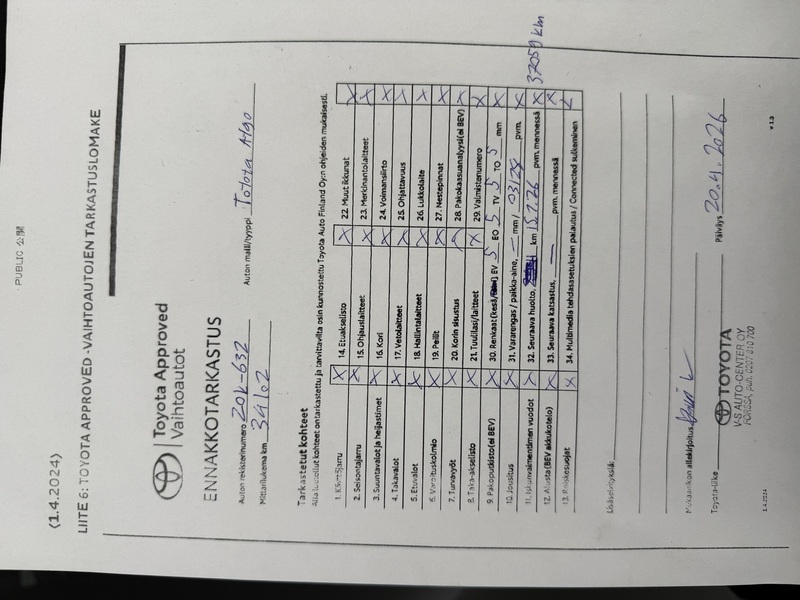 PUBLIC 公開
(1.4.2024)
LIITE 6: TOYOTA APPROVED -VAIHTOAUTOJEN TARKASTUSLOMAKE
Toyota Approved
Vaihtoautot
ENNAKKOTARKASTUS
Auton rekisterinumero ZOK-632 Auton malli/tyyppi Toyota Aygo
Mittarilukema km 34102
Tarkastetut kohteet
Alla luetellut kohteet on tarkastettu ja tarvittavilta osin kunnostettu Toyota Auto Finland Oy:n ohjeiden mukaisesti.
1. Käsijarru X 14. Etuakselisto X 22. Muut ikkunat X
2. Seisontajarru X 15. Ohjauslaitteet X 23. Merkinantolaitteet X
3. Suuntavalot ja heijastimet X 16. Kori X 24. Voimansiirto X
4. Takavalot X 17. Vetolaitteet X 25. Ohjattavuus X
5. Etuvalot X 18. Hallintalaitteet X 26. Lukkolaite X
6. Varoituskolmio X 19. Peilit X 27. Nestepinnat X
7. Turvavyöt X 20. Korin sisustus X 28. Pakokaasuanalyysi (ei BEV) X
8. Taka-akselisto X 21. Tuulilasi/laitteet X 29. Valmistenumero X
9. Pakoputkisto (ei BEV) X 30. Renkaat (kesä/ EV 5 EO 5 TV 5 TO 5 mm X
10. Jousitus X 31. Vararengas / paikka-aine, – mm / 03/28 pvm. X
11. Iskunvaimentimen vuodot X 32. Seuraava huolto, km 15.2.26 pvm. mennessä X 37059 km
12. Alusta (BEV akkukotelo) X 33. Seuraava katsastus, – pvm. mennessä X
13. Roiskesuojat X 34. Multimedia tehdasasetuksien palautus / Connected sulkeminen X
Lisäselvityksiä:
Mekaanikon allekirjoitus
Toyota-liike TOYOTA Päiväys 20.4.2026
V-S AUTO-CENTER OY
FORSSA, puh. 0207 010 700
1.4.2024 v 1.3